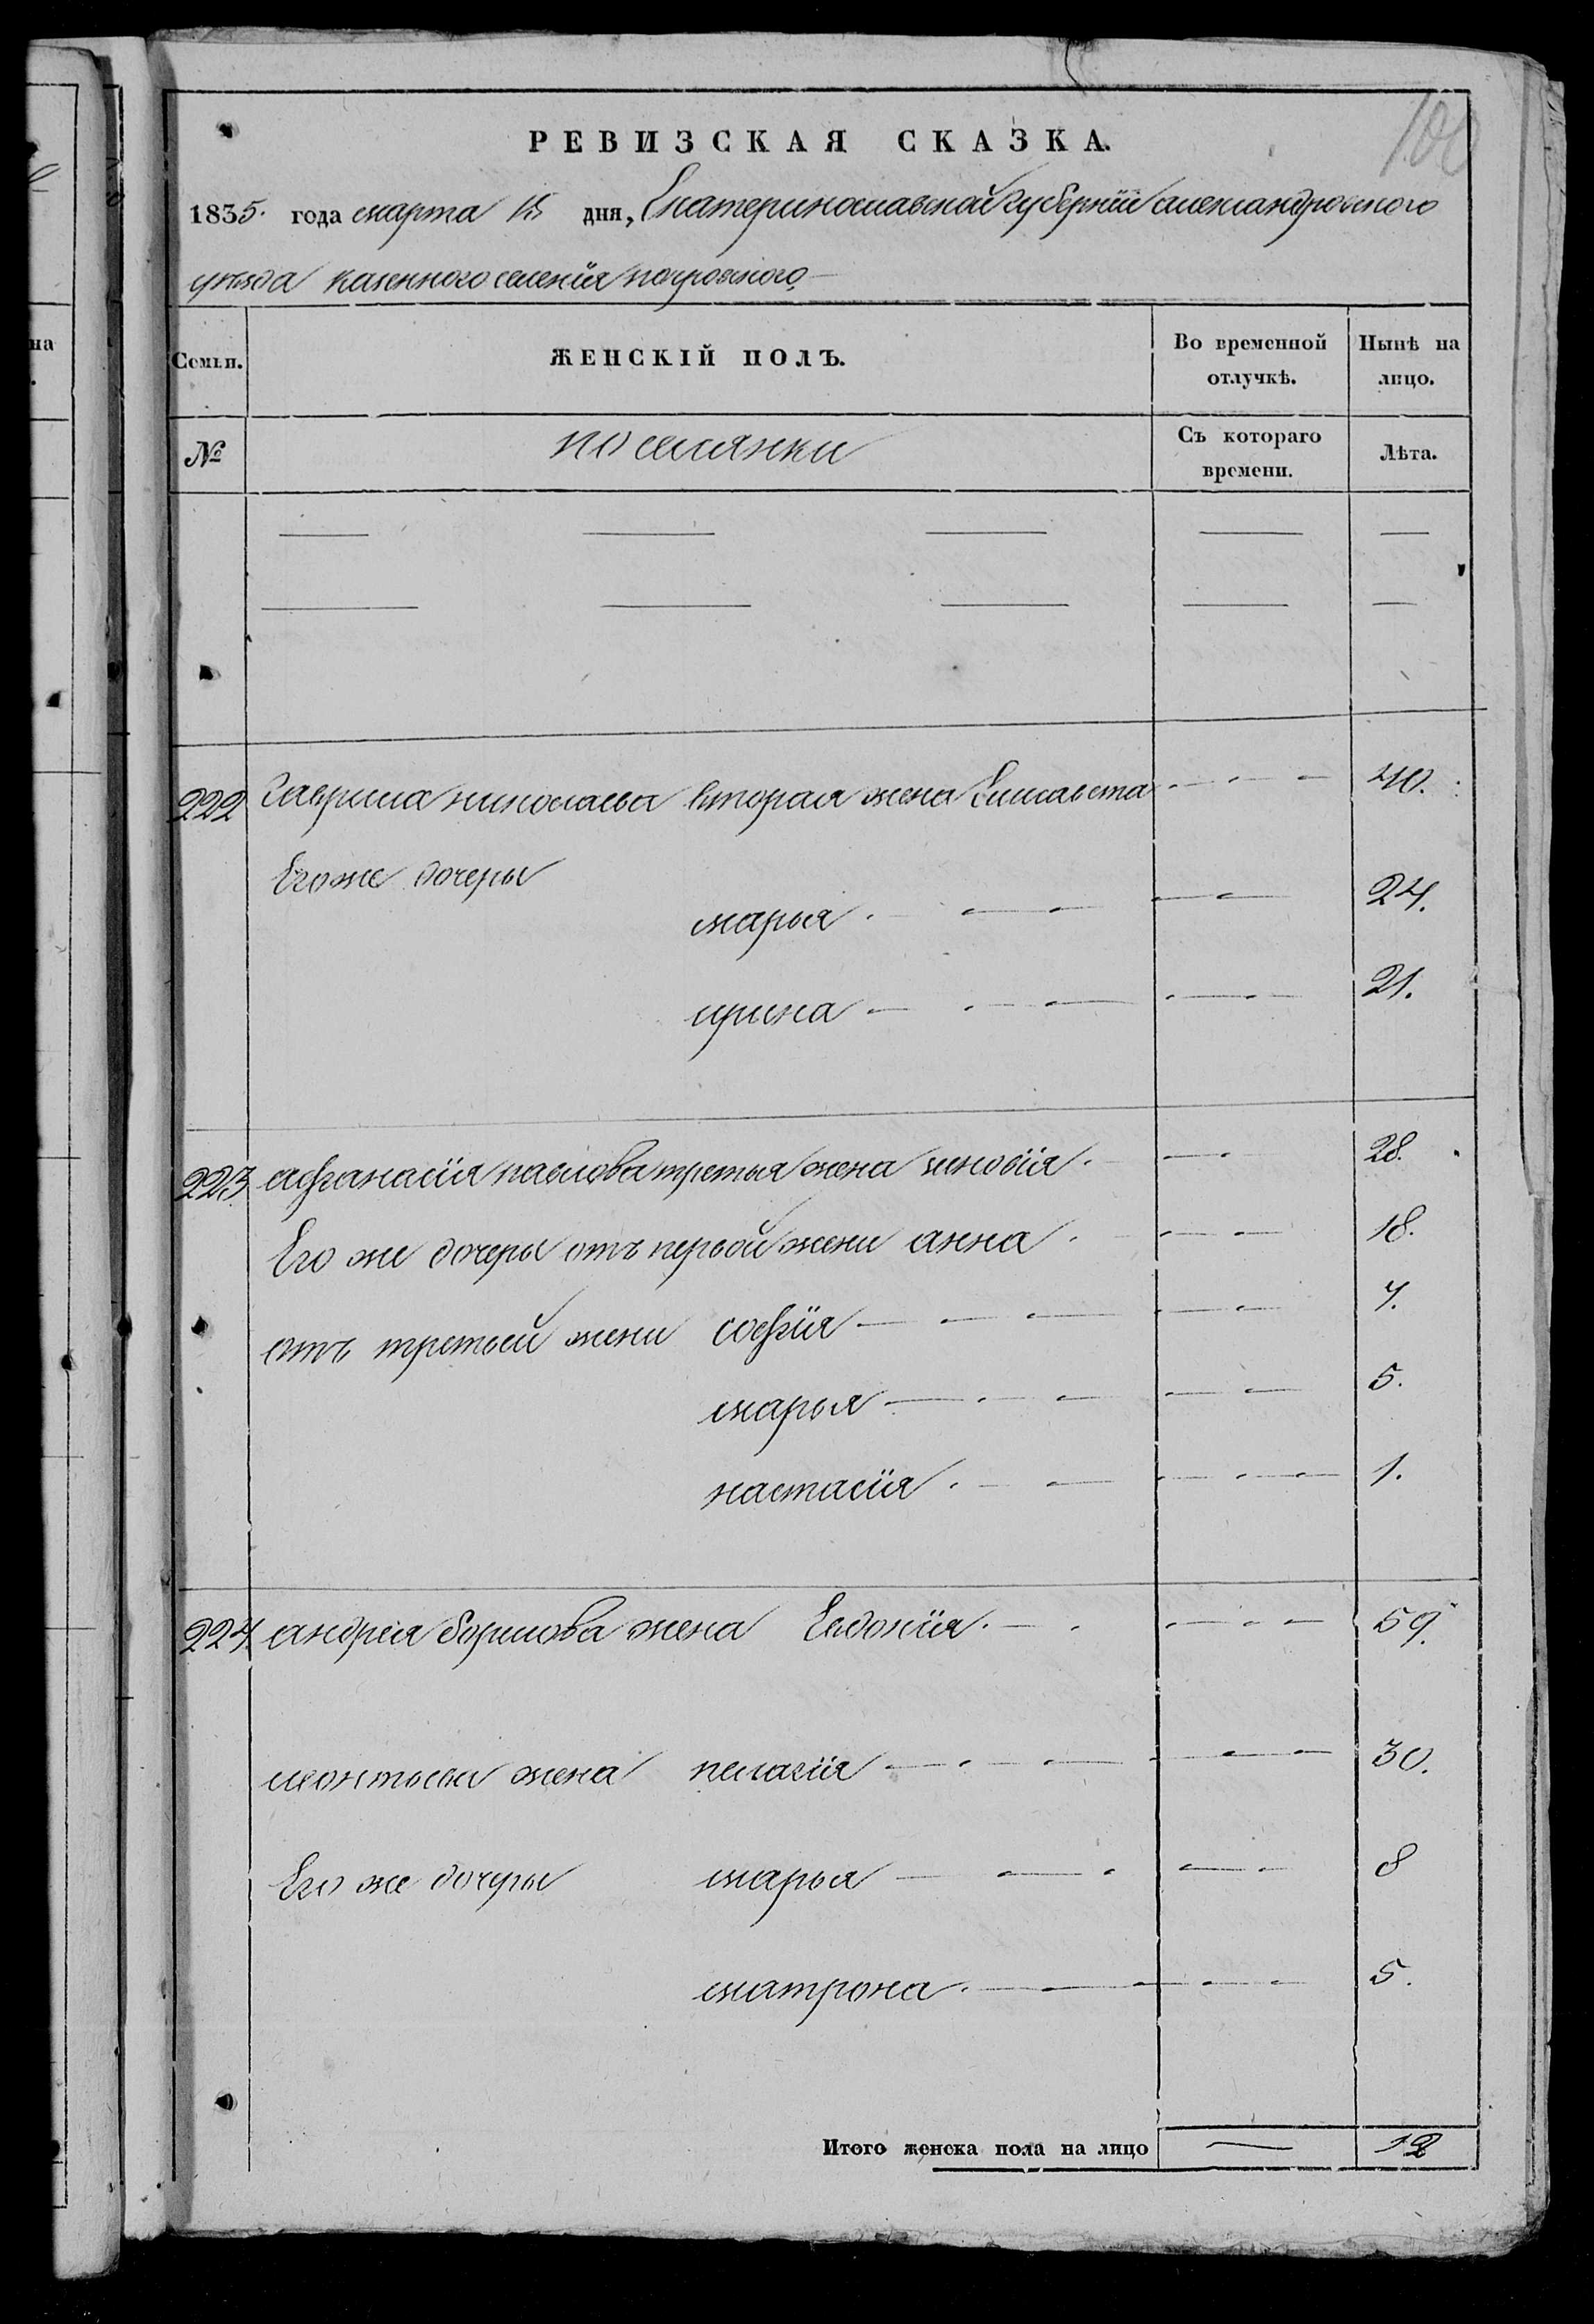 100
РЕВИЗСКАЯ СКАЗКА.
1835. года марта 15 дня, Екатеринославской губернїи александровского
уезда казенного селенїя покровского
Семьи. ЖЕНСКІЙ ПОЛЪ. Во временной отлучкѣ. Нынѣ на лицо.
№ поселянки Съ котораго времени. Лѣта.
222 Гаврила николаева вторая жена Елисавета 40.
Егоже дочеры
марья 24.
ирина 21.
223 афанасїя павлова третья жена зиновїя 28.
Его же дочеры отъ первой жени анна 18.
отъ третьей жени софїя 7.
марья 5.
настасїя 1.
224 андрея борисова жена Евдокїя 59.
леонтьева жена пелагїя 30.
Его же дочеры марья 8
матрона 5.
Итого женска пола на лицо — 12
на